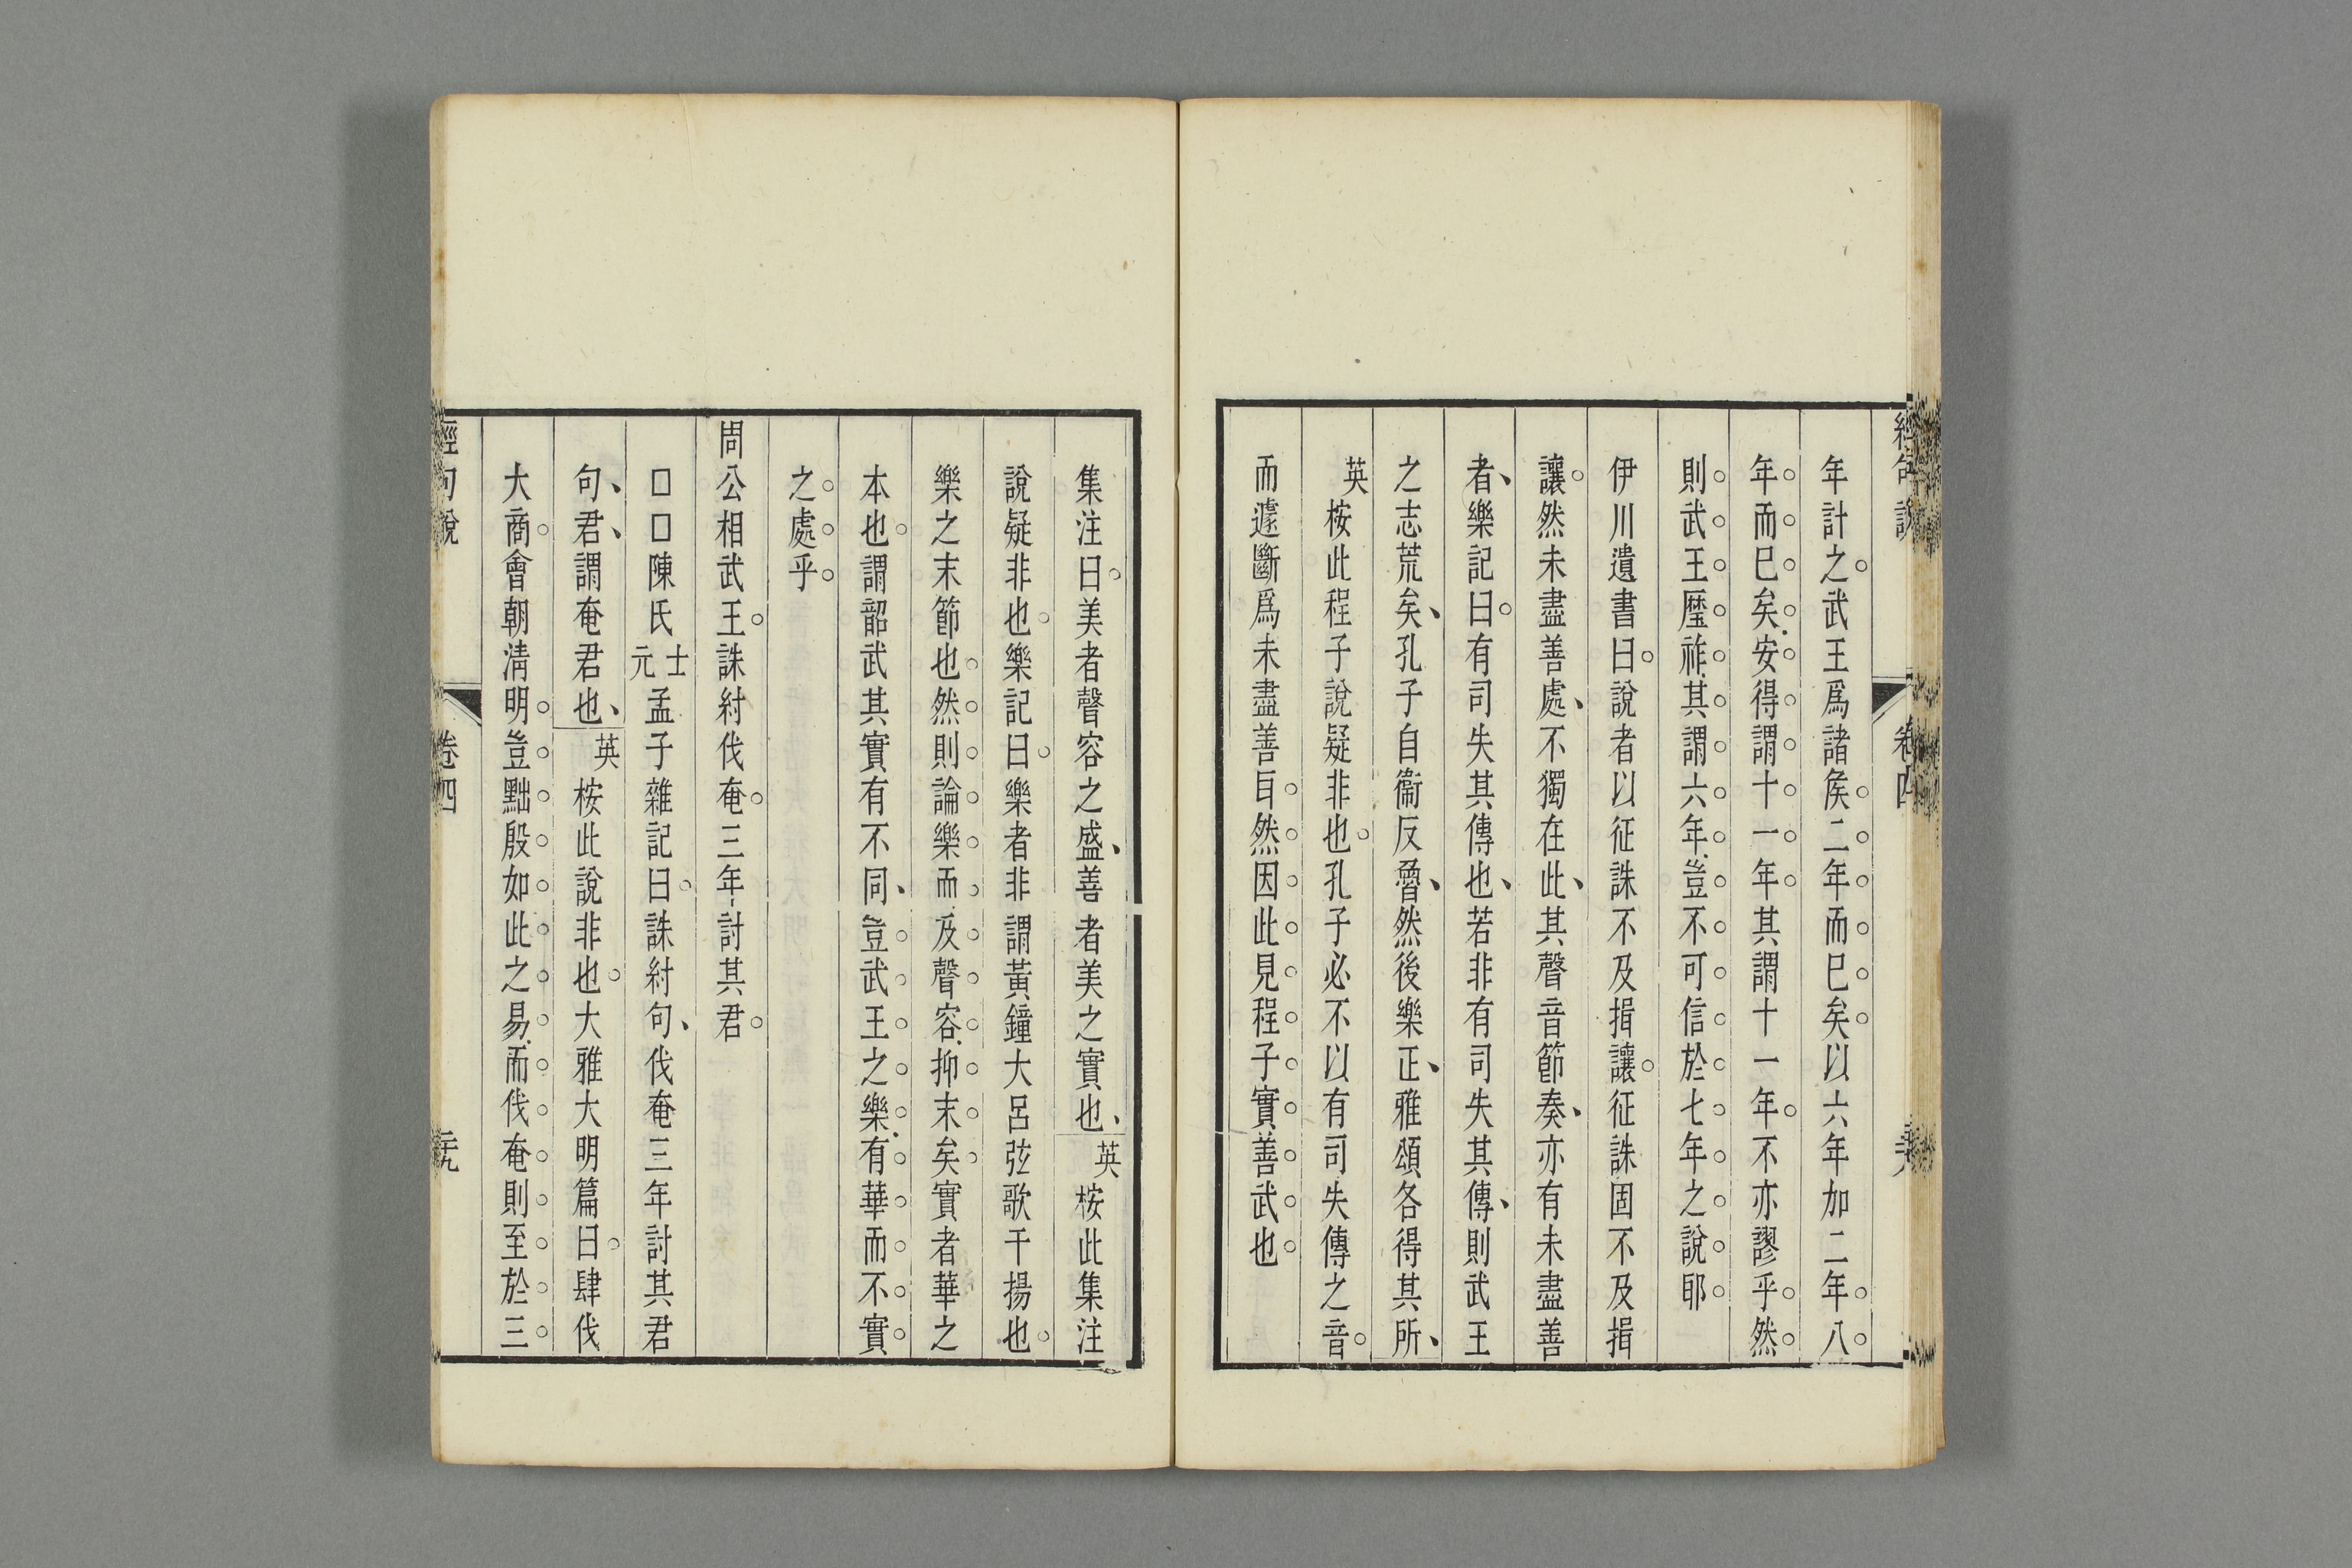 經句說
卷四
年計之武王爲諸侯二年而已矣以六年加二年八
年而已矣安得謂十一年其謂十一年不亦謬乎然
則武王歷祚其謂六年豈不可信於七年之說耶
伊川遺書曰說者以征誅不及揖讓征誅固不及揖
讓然未盡善處不獨在此其聲音節奏亦有未盡善
者樂記曰有司失其傳也若非有司失其傳則武王
之志荒矣孔子自衞反魯然後樂正雅頌各得其所
英桉此程子說疑非也孔子必不以有司失傳之音
而遽斷爲未盡善㠯然因此見程子實善武也
集注曰美者聲容之盛善者美之實也英桉此集注
說疑非也樂記曰樂者非謂黃鐘大呂弦歌干揚也
樂之末節也然則論樂而及聲容抑末矣實者華之
本也謂韶武其實有不同豈武王之樂有華而不實
之處乎
周公相武王誅紂伐奄三年討其君
□□陳氏士元孟子雜記曰誅紂句伐奄三年討其君
句君謂奄君也英桉此說非也大雅大明篇曰肆伐
大商會朝淸明豈黜殷如此之易而伐奄則至於三
經句說
卷四
二十九